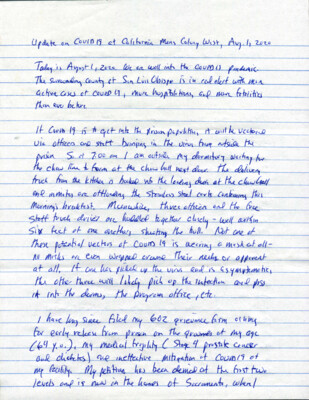 Update on COVID 19 at California Mens Colony West, Aug. 1, 2020
Today is August 1, 2020. We are well into the COVID 19 pandemic.
The surrounding county of San Luis Obispo is in red alert with more
active cases of COVID 19, more hospitalizations, and more fatalities
than ever before.
If Covid 19 is to get into the prison population, it will be vectored
via officers and staff bringing in the virus from outside the
prison. So at 7:00 am I am outside my dormitory waiting for
the chow line to form at the chow hall next door. The delivery
truck from the kitchen is backed into the loading dock at the chowhall
and inmates are offloading the stainless steel carts containing this
morning's breakfast. Meanwhile, three officers and the free
staff truck driver are huddled together closely - well within
six feet of one another, shooting the bull. Not one of
these potential vectors of Covid 19 is wearing a mask at all -
no masks or even wrapped around their necks or apparent
at all. If one has picked up the virus and is asymptomatic,
the other three will likely pick up the infection and pass
it into the dorms, the program office, etc.
I have long since filed my 602 grievance form asking
for early release from prison on the grounds of my age
(64 y.o.), my medical fragility (Stage 4 prostate cancer
and diabetes) and ineffective mitigation of Covid 19 at
my facility. My petition has been denied at the first two
levels and is now in the hands of Sacramento, where I